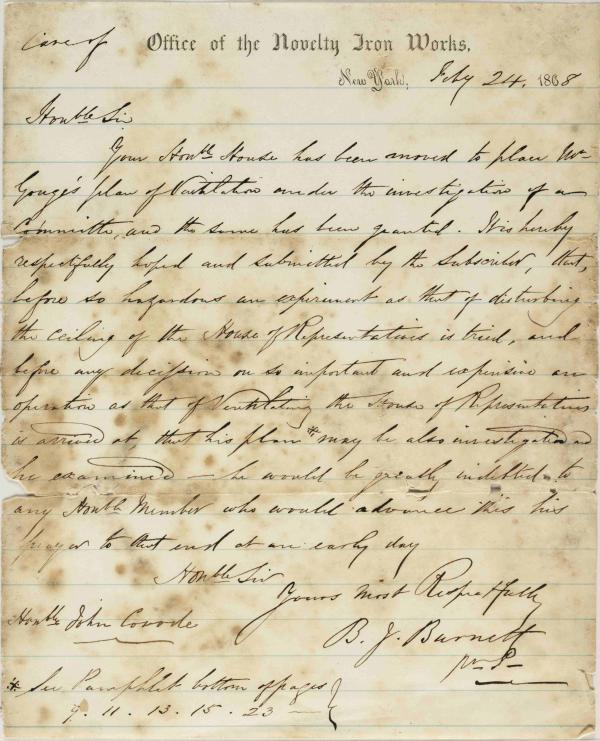 Care of Office of the Novelty Iron Works,
New York, Feby 24, 1868
Honble Sir
Your Honble House has been moved to place Mr
Gouge's plan of Ventilation under the investigation of a
Committee, and the same has been granted. It is hereby
respectfully hoped and submitted by the subscriber, that,
before so hazardous an experiment as that of disturbing
the ceiling of the House of Representatives is tried, and
before any decission on so important and expensive an
operation as that of Ventilating the House of Representatives
is arrived at, that his plan * may be also investigated and
he examined — he would be greatly indebted to
any Honble Member who would advance this his
prayer to that end at an early day
Honble Sir
Yours most Respectfully
Honble John Covode
B. J. Burnett
* See Pamphlet bottom of pages
9. 11. 13. 15. 23 —